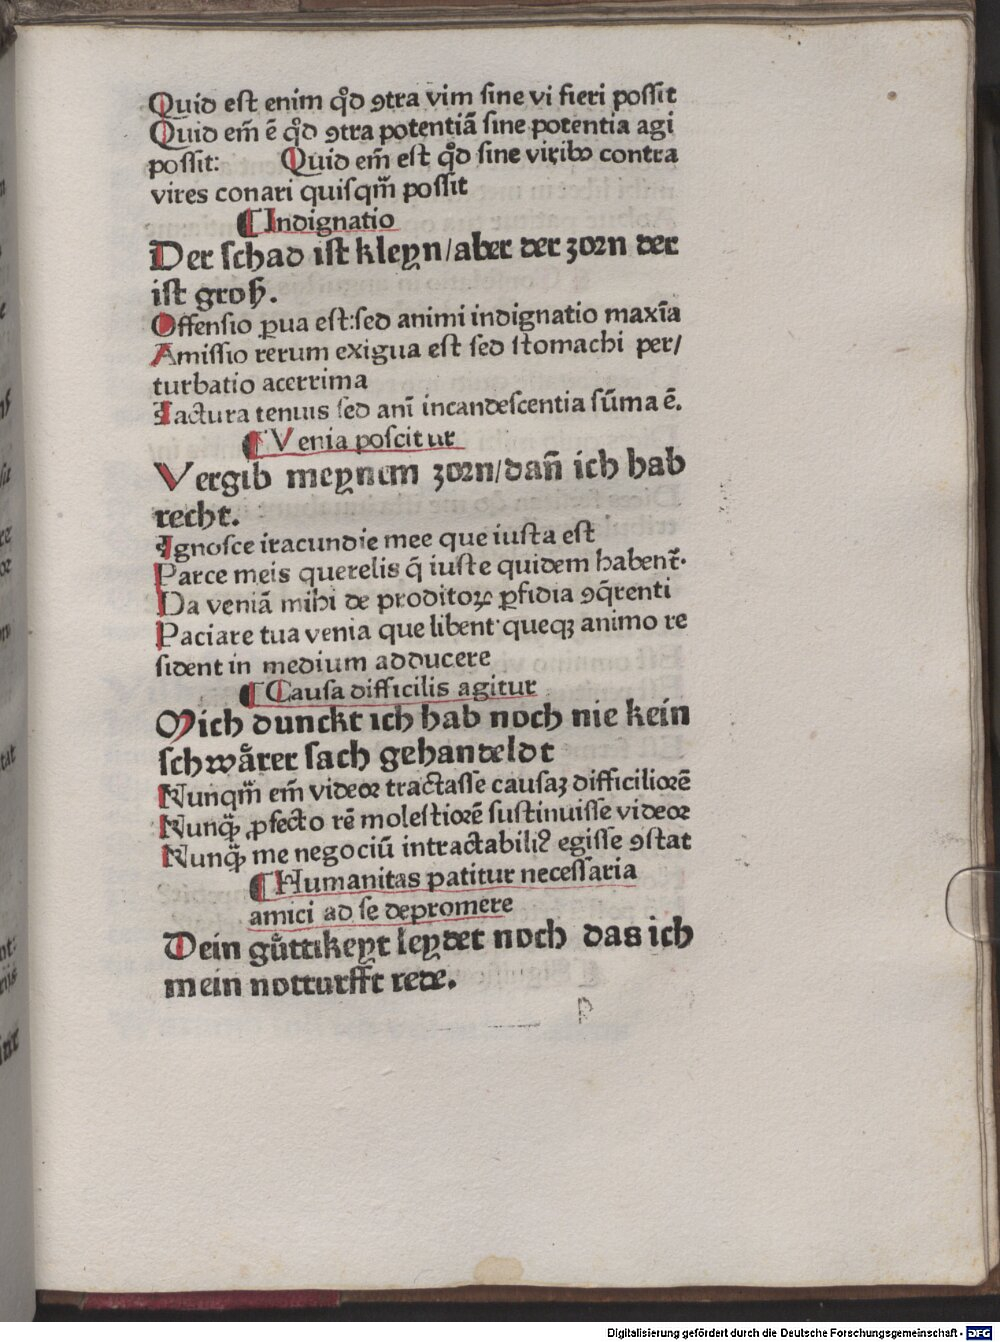 Quid eſt enim qͦd ꝯtra vim ſine vi fieri poſſit
Quid em̄ ē qͦd ꝯtra potentiā ſine potentia agi
poſſit: Quid em̄ eſt qͦd ſine viribꝰ contra
vires conari quiſqm̄ poſſit
¶ Indignatio
Der ſchad iſt kleyn/aber der zorn der
iſt groß.
Offenſio ꝑua eſt:ſed animi indignatio maxīa
Amiſſio rerum exigua eſt ſed ſtomachi per/
turbatio acerrima
Iactura tenuis ſed anī incandeſcentia ſūma ē.
¶ Venia poſcitur
Vergib meynem zorn/dañ ich hab
recht.
Ignoſce iracundie mee que iuſta eſt
Parce meis querelis q̄ iuſte quidem habent᷑.
Da veniā mihi de proditoꝝ ꝑfidia ꝯq̄renti
Paciare tua venia que libent᷑ queqꝫ animo re
ſident in medium adducere
¶ Cauſa difficilis agitur
Mich dunckt ich hab noch nie kein
ſchwaͤrer ſach gehandeldt
Nunqm̄ em̄ videor tractaſſe cauſaꝫ difficiliorē
Nunqꝫ̄ ꝓfecto rē moleſtiorē ſuſtinuiſſe videor
Nunqꝫ̄ me negociū intractabiliꝰ egiſſe ꝯſtat
¶ Humanitas patitur neceſſaria
amici ad ſe depromere
Dein guͤttikeyt leydet noch das ich
mein notturfft rede.
Digitalisierung gefördert durch die Deutsche Forschungsgemeinschaft - DFG